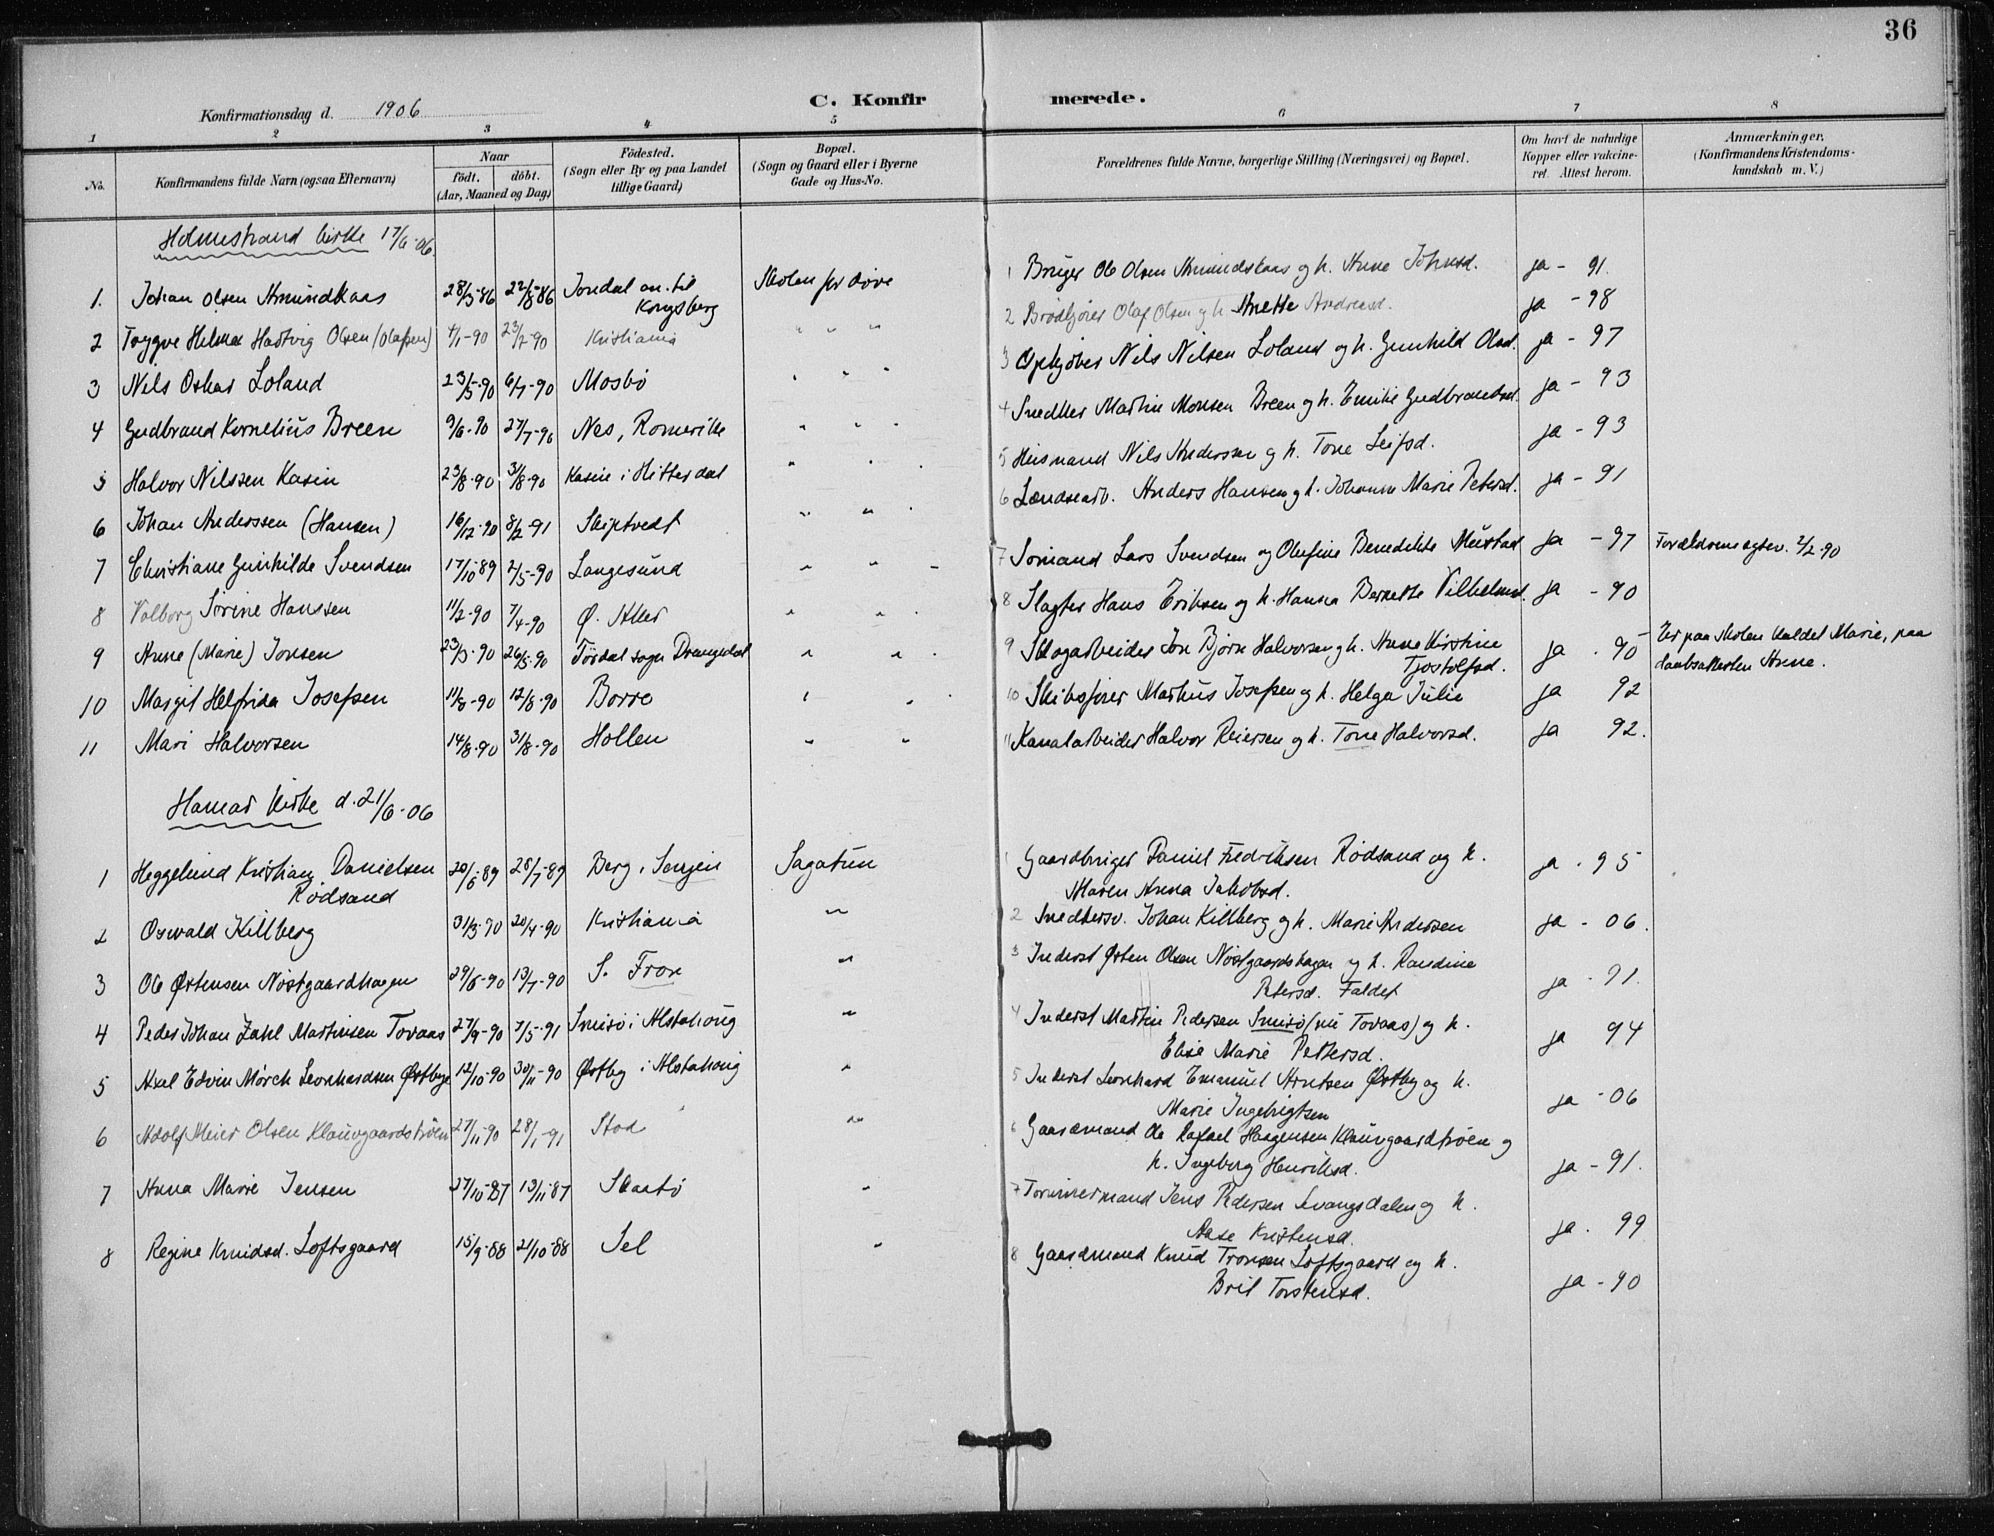 36
Konfirmationsdag d. 1906
C. Konfirmerede.
1 2 3 4 5 6 7 8
No. Konfirmandens fulde Navn (ogsaa Efternavn) Naar födt. döbt. (Aar, Maaned og Dag) Födested. (Sogn eller By og paa Landet tillige Gaard) Bopæl. (Sogn og Gaard eller i Byerne Gade og Hus-No. Forældrenes fulde Navne, borgerlige Stilling (Næringsvei) og Bopæl. Om havt de naturlige Kopper eller vakcineret. Attest herom. Anmærkninger. (Konfirmandens Kristendomskundskab m. V.)
Holmestrand kirke 17/6-06.
1. Johan Olsen Amundskaas 28/3-86 22/8-86 Jondal an. til Kongsberg Skolen for døve 1 Bruger Ole Olsen Amundskaas og h. Anne Johnsd. ja - 91.
2 Trygve Helmer Hartvig Olsen (Olafsen) 4/1-90 23/2-90 Kristiania " " " 2 Brødkjører Olaf Olsen og h. Anette Andreasd. ja - 98
3 Nils Oskar Loland 23/5-90 6/7-90 Mosbö " " " 3 Opkjøber Nils Nilsen Loland og h. Gunhild Olsd. ja - 97
4 Gudbrand Kornelius Breen 9/6-90 27/7-90 Nes, Romerike " " " 4 Snedker Martin Monsen Breen og h. Emilie Gudbrandsd. ja - 93
5 Halvor Nilssen Kasin 23/8-90 3/8-90 Kasin i Hitterdal " " " 5 Husmand Nils Anderssen og h. Tone Leifsd. ja - 93
6 Johan Anderssen (Hansen) 16/12-90 8/2-91 Skiptvedt " " " 6 Lændsearb. Anders Hansen og h. Johanne Marie Petersd. ja - 91
7 Christiane Gunhilde Svendsen 17/10-89 2/5-90 Langesund " " - 7 Sömand Lars Svendsen og Olufine Benedikte Mustad ja - 97 Forældrene ægtev. 2/2-90
8 Valborg Sorine Hanssen 11/2-90 7/4-90 Ø. Aker " " 8 Slagter Hans Eriksen og h. Hanna Bernette Vilhelmsd. ja - 90
9 Anne (Marie) Jonsen 23/3-90 26/5-90 Tørdal sogn Drangedal " " 9 Skogarbeider Jon Björn Halvorsen og h. Anne Kirstine Tjostolfsd. ja - 90 Er paa skolen kaldet Marie, paa daabsattesten Anne.
10 Margit Helfrida Josefsen 11/6-90 12/8-90 Borre " " 10 Skibsfører Markus Josefsen og h. Helga Julie ja 92
11 Mari Halvorsen 14/8-90 31/8-90 Hollen " " 11 Kanalarbeider Halvor Reiersen og h. Tone Halvorsd. ja 92.
Hamar kirke d. 21/6-06
1 Heggelund Kristian Danielsen Rödsand 20/6-89 28/7-89 Berg, Senjen Sagatun 1 Gaardbruger Daniel Fredriksen Rödsand og h.
Maren Anna Jakobsd. ja - 95
2 Oswald Killberg 31/3-90 20/4-90 Kristiania " 2 Snedkersv. Johan Killberg og h. Marie Andersen ja - 06.
3 Ole Østensen Nöstgaardhagen 29/6-90 13/7-90 S. Fron " 3 Inderst Østen Olsen Nöstgaardshagen og h. Randine
Petersd. Faldet ja - 91.
4 Peder Johan Zahl Martinsen Tovaas 27/9-90 7/5-91 Smisö i Alstahoug " 4 Inderst Martin Pedersen Smisö (nu Tovaas) og h.
Elise Marie Pettersd. ja 94
5 Axel Edvin Mörch Leonhardsen Østbye 12/10-90 30/11-90 Østby i Alstahoug " 5 Inderst Leonhard Emanuel Arntsen Østby og h.
Marie Ingebrigtsen ja - 06
6 Adolf Meier Olsen Klauvgaardstrøen 27/11-90 28/1-91 Stod " 6 Gaardmand Ole Rafael Haagensen Klauvgaardtrøen og
h. Ingeborg Henriksd. ja - 91.
7 Anna Marie Jensen 27/10-87 13/11-87 Skaatö " 7 Tømmermand Jens Pedersen Svangsdalen og h.
Aase Kristensd. ja. 99
8 Regine Knudsd. Loftsgaard 15/9-88 21/10-88 Sel " 8 Gaardmand Knud Tronsen Loftsgaard og h.
Brit Torstensd. ja - 90